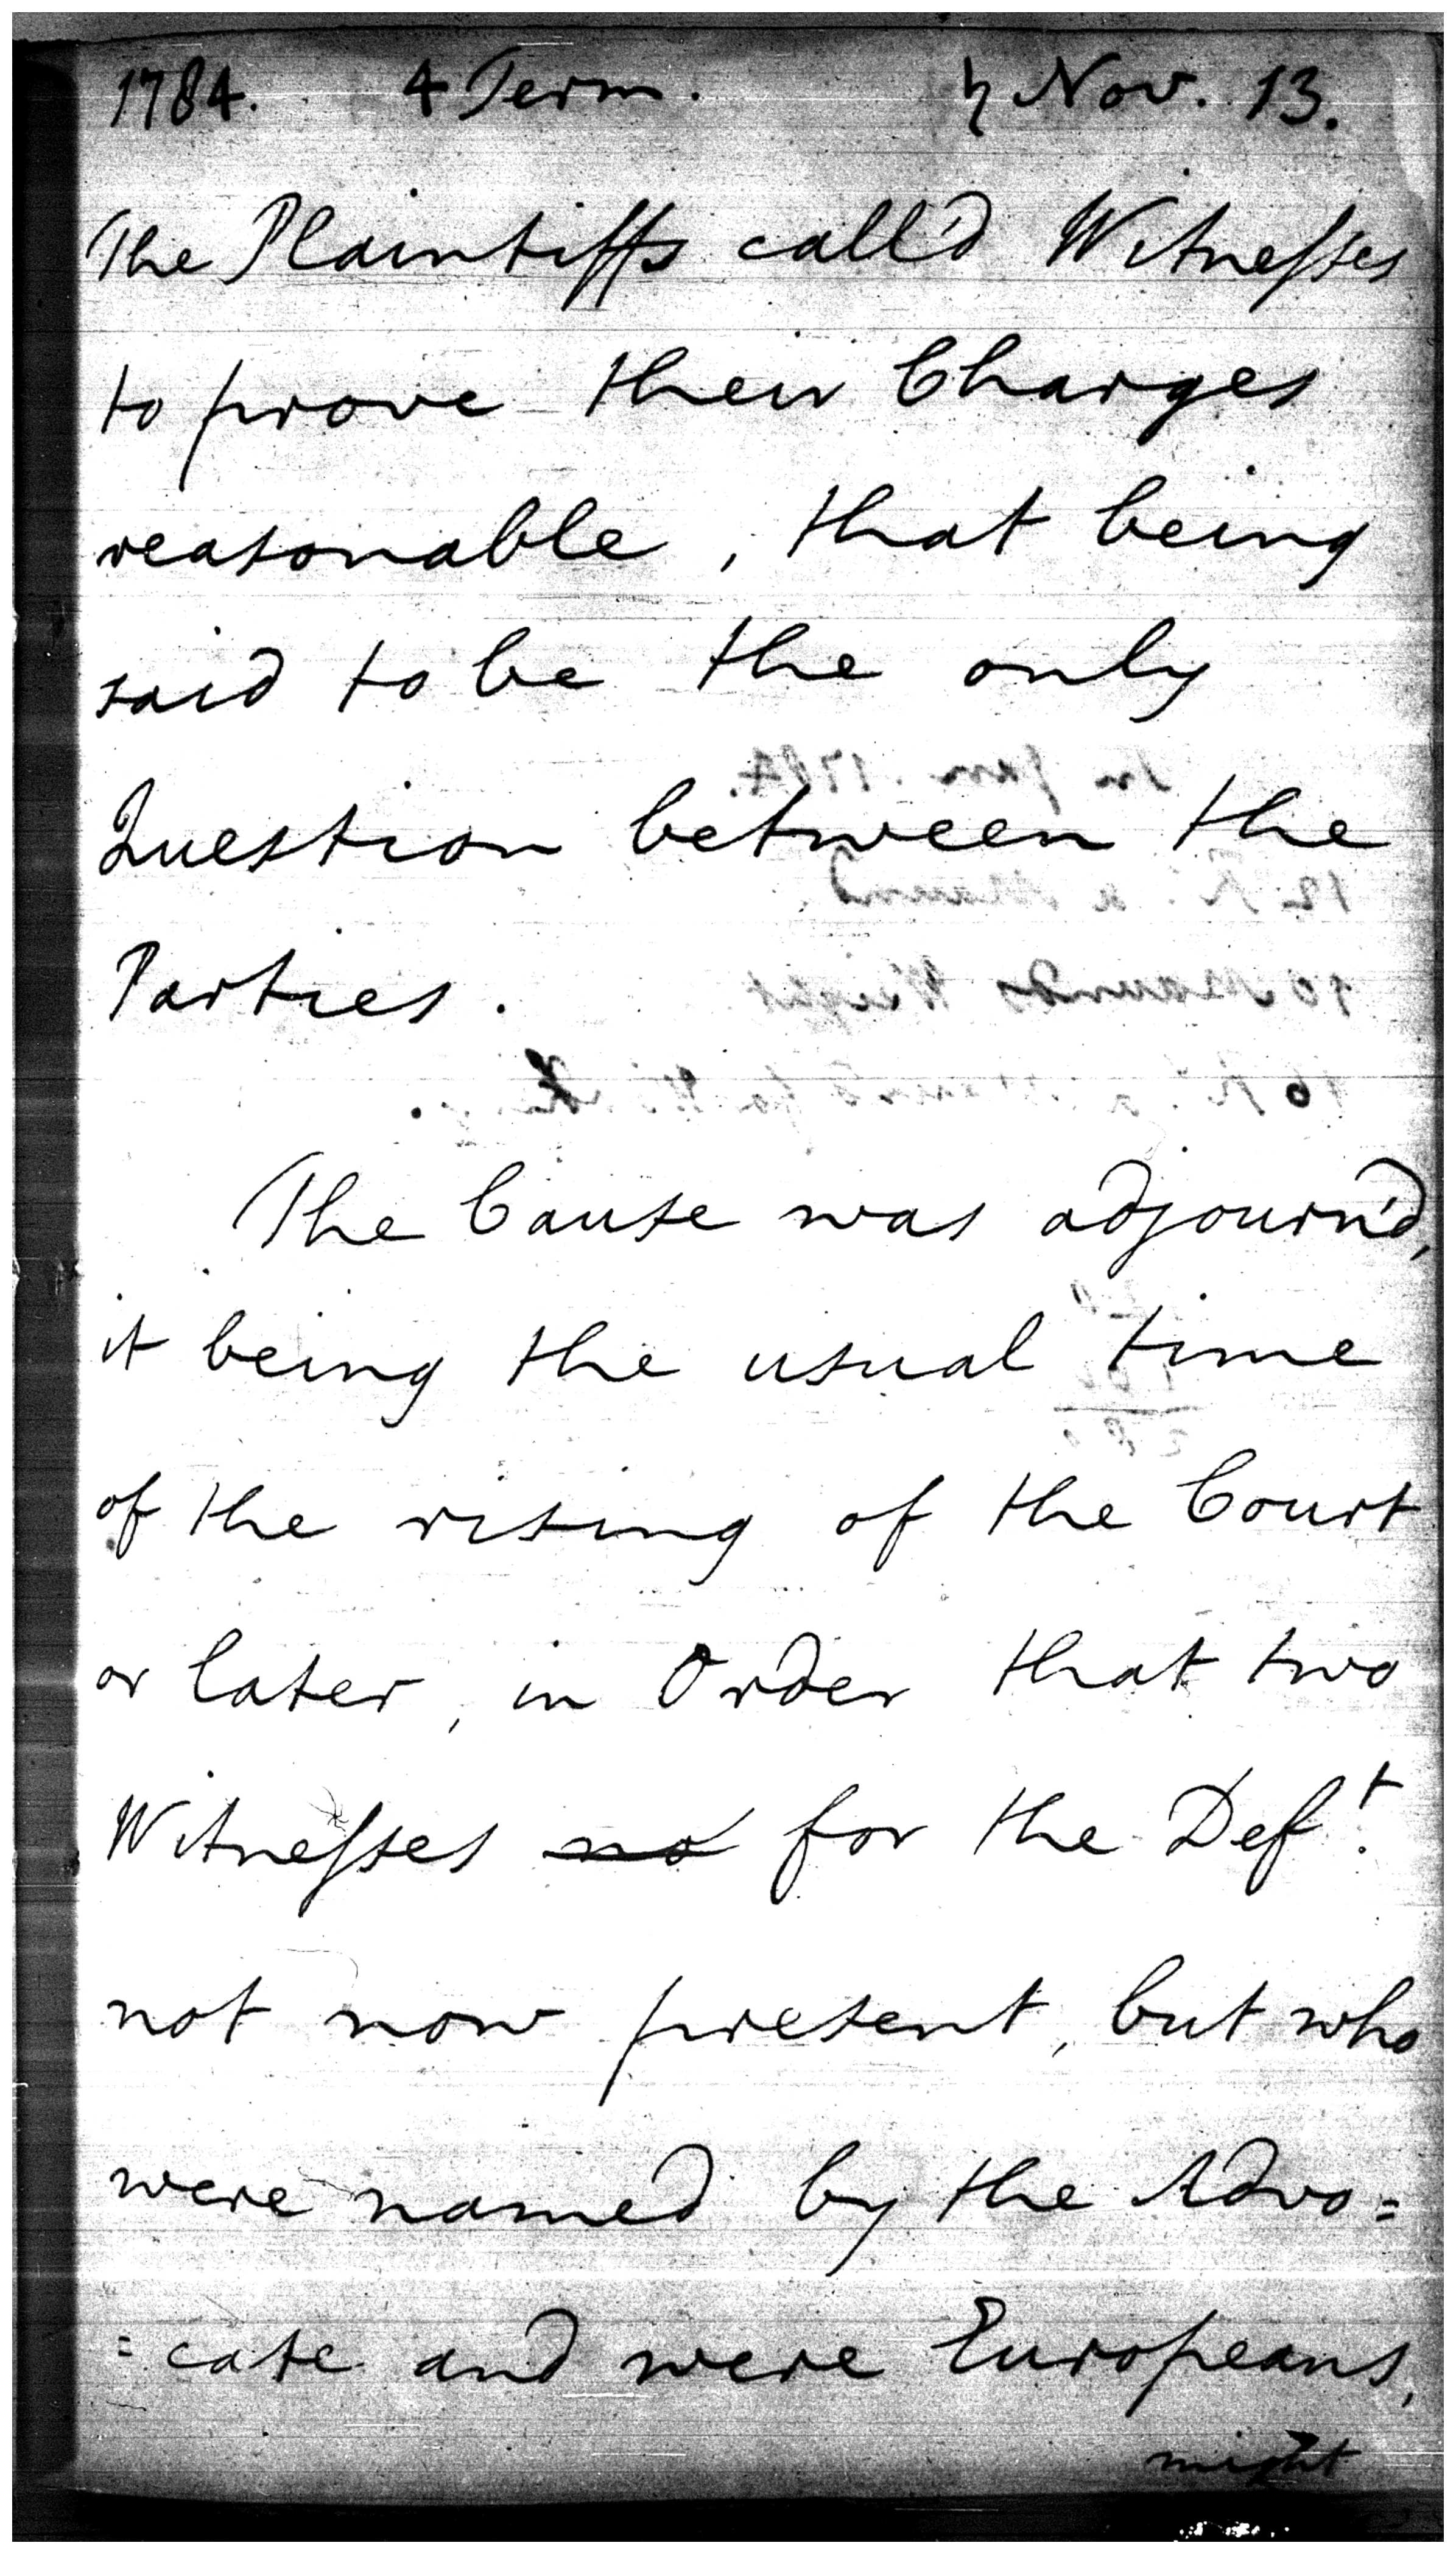 1784. 4 Term. ♄ Nov. 13.
The Plaintiffs call'd Witnesses
to prove their Charges
reasonable, that being
said to be the only
Question between the
Parties.
The Cause was adjourn'd,
it being the usual time
of the rising of the Court
or later, in Order that two
Witnesses no for the Def.t
not now present, but who
were named by the Advo=
=cate and were Europeans,
might